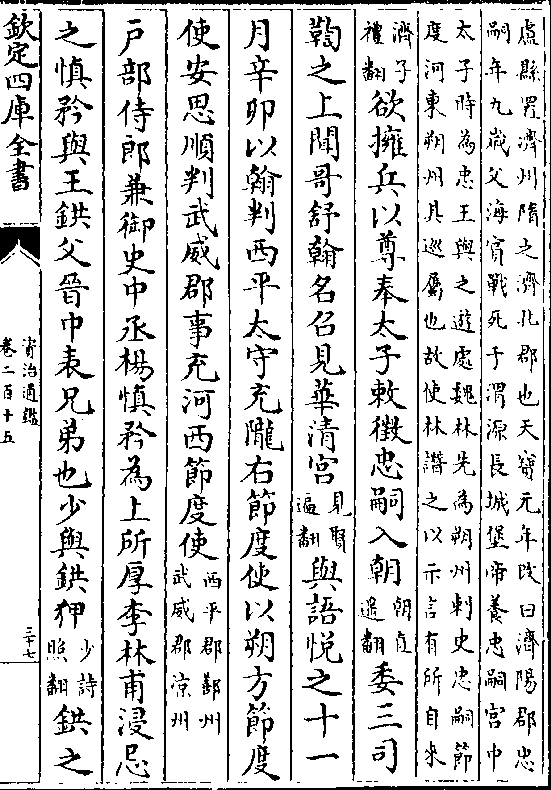 盧縣置濟州隋之濟北郡也天寶元年改曰濟陽郡忠
嗣年九歲父海賓戰死于渭源長城堡帝養忠嗣宮中
太子時為忠王與之遊處魏林先為朔州刺史忠嗣節
度河東朔州其巡屬也故使林譖之以示言有所自來
濟子
禮翻
欲擁兵以尊奉太子敕徵忠嗣入朝
朝直
遥翻
委三司
鞫之上聞哥舒翰名召見華清宮
見賢
遍翻
與語悅之十一
月辛卯以翰判西平太守充隴右節度使以朔方節度
使安思順判武威郡事充河西節度使
西平郡鄯州
武威郡涼州
戶部侍郎兼御史中丞楊慎矜為上所厚李林甫浸忌
之慎矜與王鉷父晉中表兄弟也少與鉷狎
少詩
照翻
鉷之
欽定四庫全書
資治通鑑
卷二百十五
三十七